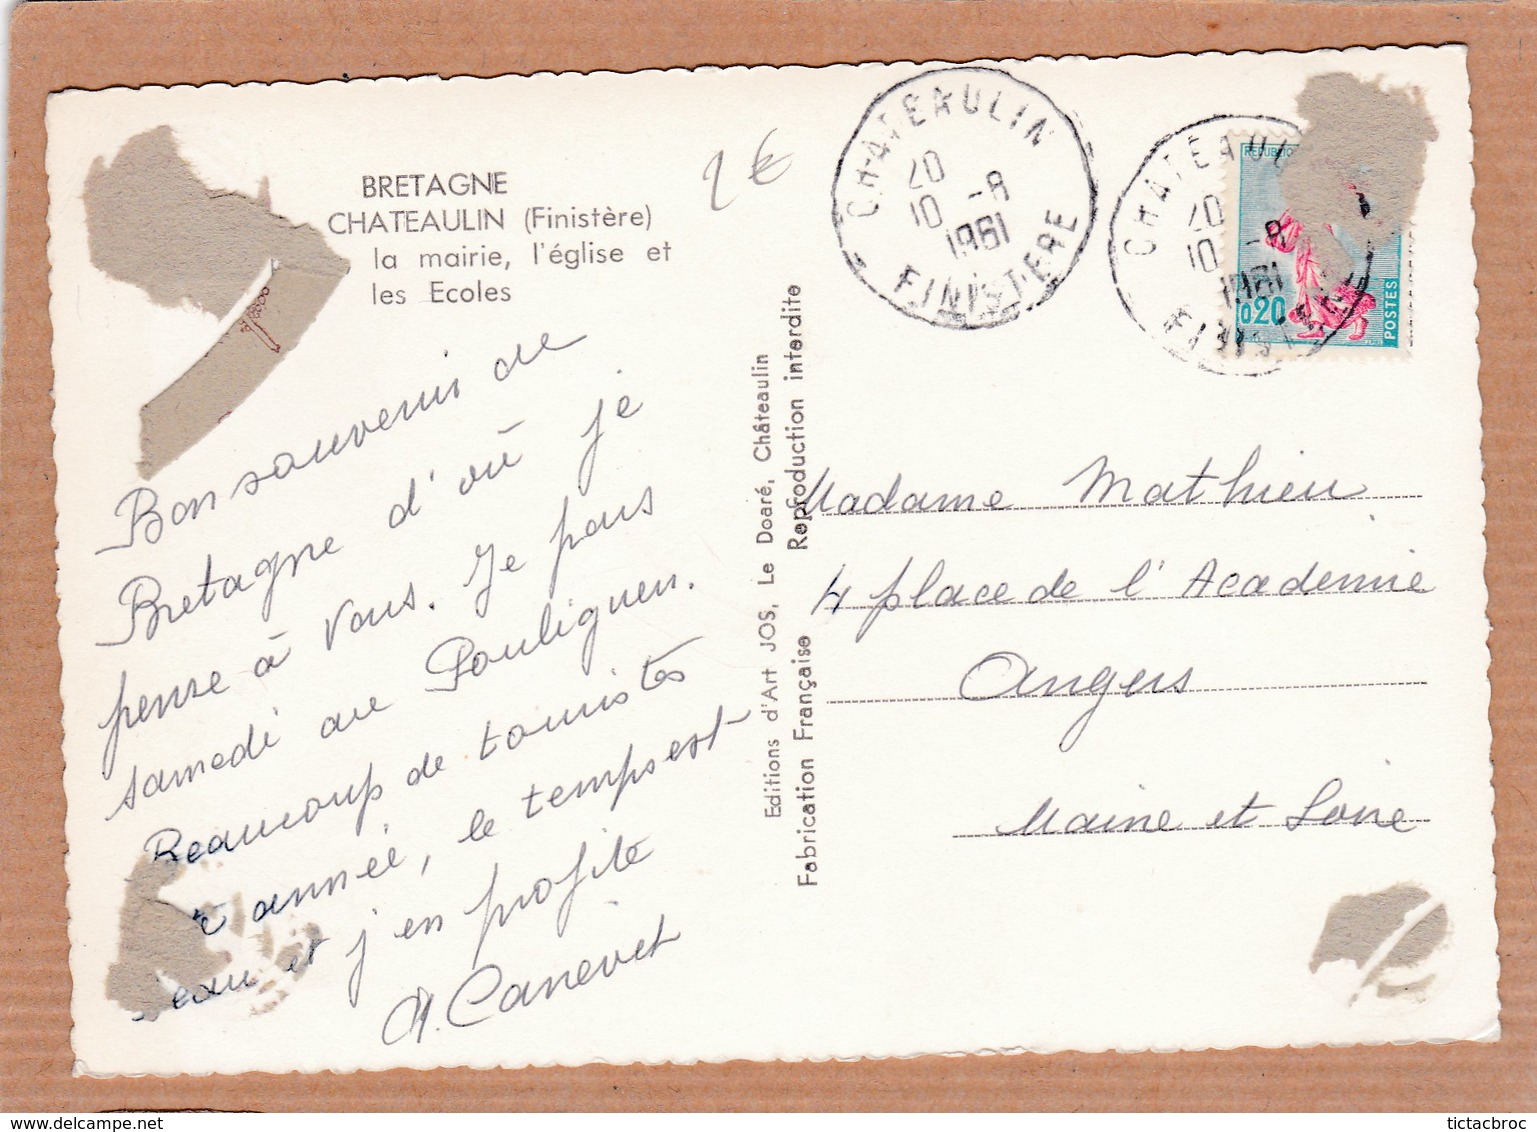 BRETAGNE
CHATEAULIN (Finistère)
la mairie, l'église et
les Ecoles
2€
Bon souvenir de
Bretagne d'où je
pense à vous. Je pars
samedi au Pouliguen.
Beaucoup de touristes
année, le temps est
beau et j'en profite
A. Canevet
Editions d'Art JOS, Le Doaré, Châteaulin
Fabrication Française Reproduction interdite
CHATEAULIN
20
10 -8
1961
FINISTERE
CHATEAUL
20
10 -8
1961
FINISTERE
REPUBLIQ
0,20
POSTES
Madame Mathieu
4 place de l'Académie
Angers
Maine et Loire
Delcampe.net
tictacbroc